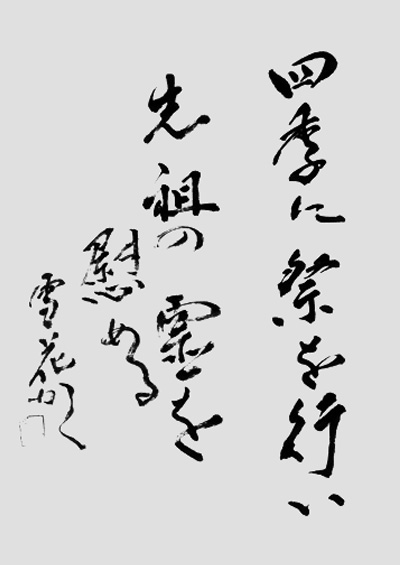 四季に祭を行い
先祖の霊を
慰める
雪花